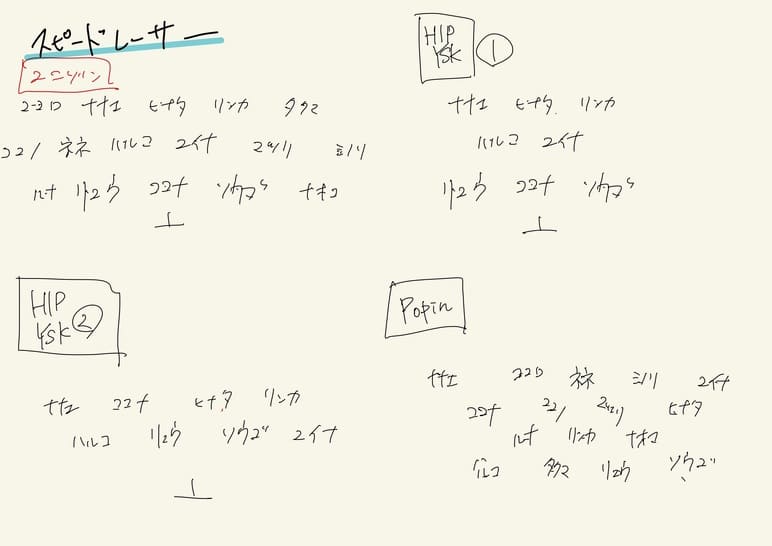 スピードレーサー
ユニゾン
ナナエ ヒナタ リンカ タクマ
ネネ ハルコ ユイナ ミノリ
ルナ リュウ ココナ ナオコ
HIP
YSK ①
ナナエ ヒナタ リンカ
ハルコ ユイナ
リュウ ココナ
HIP
YSK ②
ナナエ ココナ ヒナタ リンカ
ハルコ リュウ ソウゴ ユイナ
Popin
ナナエ ココロ ネネ ミノリ ユイナ
ココナ ユウリ ヒナタ
ルナ リンカ ナオコ
ハルコ タクマ リュウ ソウゴ